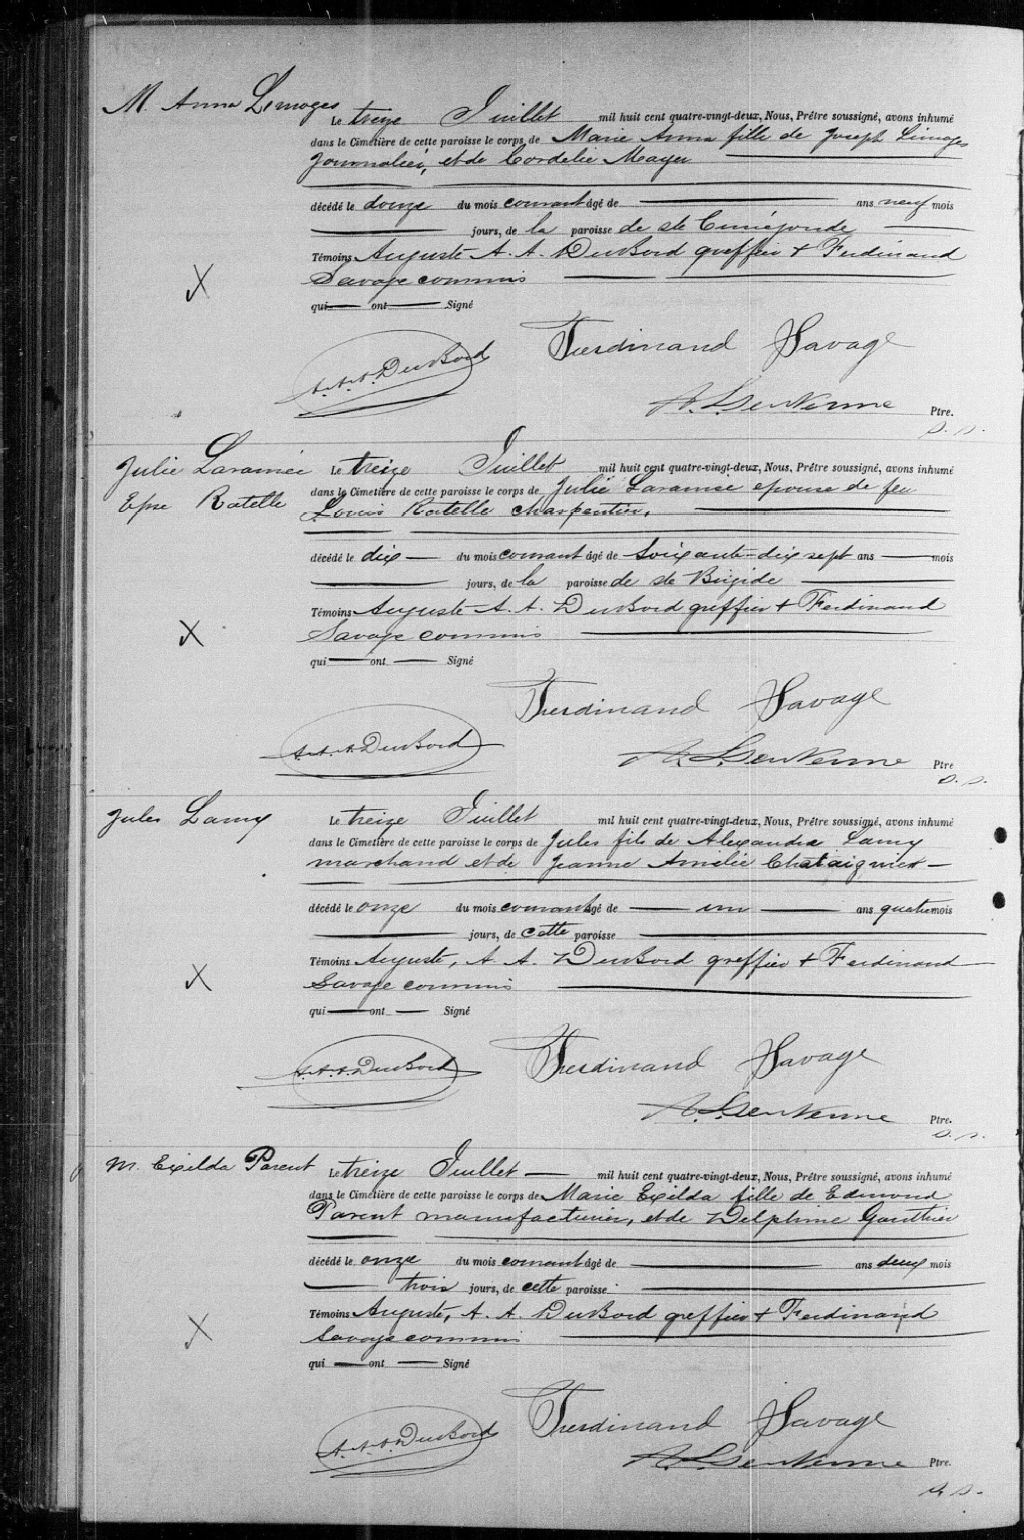 M. Anna Limoges
Le treize Juillet mil huit cent quatre-vingt-deux, Nous, Prêtre soussigné, avons inhumé
dans le Cimetière de cette paroisse le corps de Marie Anna fille de Joseph Limoges
Journalier, et de Cordelie Mayer
décédé le douze du mois courant âgé de ans neuf mois
jours, de la paroisse de ste Cunégonde
Témoins Auguste A. A. DuBord greffier & Ferdinand
Savage commis
qui ont Signé
Ferdinand Savage
A. A. A. DuBord
Ptre.
Julie Laramée
Epse Ratelle
Le treize Juillet mil huit cent quatre-vingt-deux, Nous, Prêtre soussigné, avons inhumé
dans le Cimetière de cette paroisse le corps de Julie Laramée epouse de feu
Louis Ratelle charpentier.
décédé le dix du mois courant âgé de Soixante-dix sept ans mois
jours, de la paroisse de ste Brigide
Témoins Auguste A. A. DuBord greffier & Ferdinand
Savage commis
qui ont Signé
Ferdinand Savage
A. A. A. DuBord
Ptre
Jules Lamy
Le treize Juillet mil huit cent quatre-vingt-deux, Nous, Prêtre soussigné, avons inhumé
dans le Cimetière de cette paroisse le corps de Jules fils de Alexandre Lamy
marchand et de Jeanne Amélie Chataignier
décédé le onze du mois courant âgé de un ans quatre mois
jours, de cette paroisse
Témoins Auguste, A. A. DuBord greffier & Ferdinand
Savage commis
qui ont Signé
Ferdinand Savage
A. A. A. DuBord
Ptre.
M. Exilda Parent
Le treize Juillet mil huit cent quatre-vingt-deux, Nous, Prêtre soussigné, avons inhumé
dans le Cimetière de cette paroisse le corps de Marie Exilda fille de Edmond
Parent manufacturier, et de Delphine Gauthier
décédé le onze du mois courant âgé de ans deux mois
trois jours, de cette paroisse
Témoins Auguste, A. A. DuBord greffier & Ferdinand
Savage commis
qui ont Signé
Ferdinand Savage
A. A. A. DuBord
Ptre.